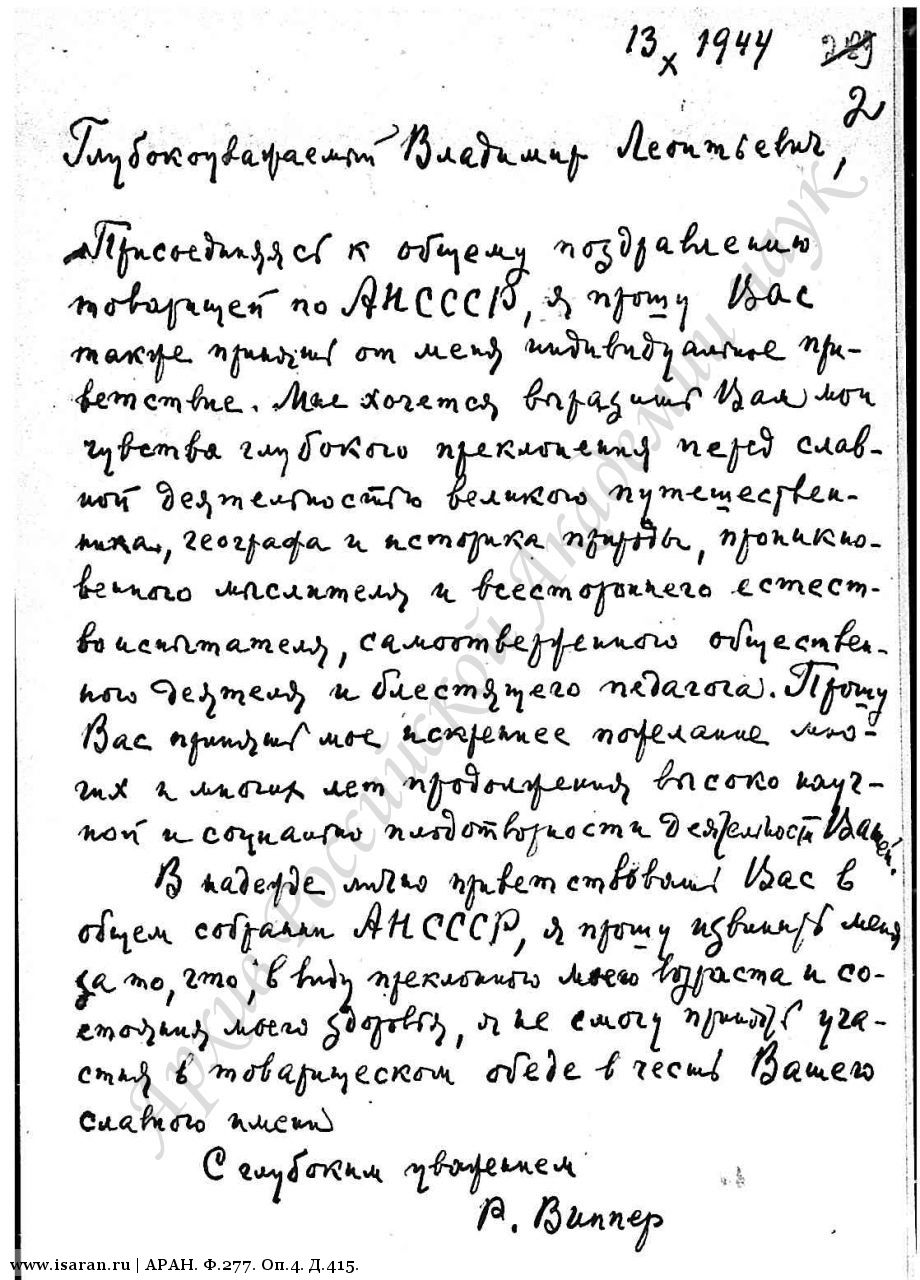 13 X 1944
229
2
Глубокоуважаемый Владимир Леонтьевич,
Присоединяясь к общему поздравлению
товарищей по АНСССР, я прошу Вас
также принять от меня индивидуальное при-
ветствие. Мне хочется выразить Вам мои
чувства глубокого преклонения перед слав-
ной деятельностью великого путешествен-
ника, географа и историка природы, проникно-
венного мыслителя и всестороннего естест-
воиспытателя, самоотверженного обществен-
ного деятеля и блестящего педагога. Прошу
Вас принять мое искреннее пожелание мно-
гих и многих лет продолжения высоко науч-
ной и социально плодотворности деятельности Вашей.
В надежде лично приветствовать Вас в
общем собрании АНСССР, я прошу извинить меня
за то, что, в виду преклонного моего возраста и со-
стояния моего здоровья, я не смогу принять уча-
стия в товарищеском обеде в честь Вашего
славного имени
С глубоким уважением
Р. Виппер
Архив Российской Академии наук
www.isaran.ru | АРАН. Ф.277. Оп.4. Д.415.